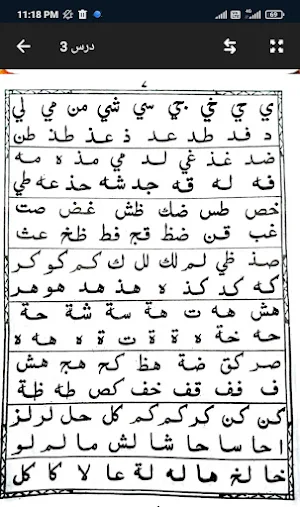 11:18 PM
4G 69
درس 3
٧
ي حي خي جي سي شي من مي لي
د فد طد عد ذ عذ طذ طن
ضد غذ غي لد مي مذ ه مه
فه له قه جد شه حذ عه طي
خص طس ضك ظش غض صت
غب قن ضظ قج فط ظخ عث
صذ ظي لم لك لل ك كم كو كر
كه كد كذ ه هذ هد هو هر
هش هه ت هة سة شة حة
حه خة ه ة ة ت ة ه هه ه
صر كق ضة هظ كح هج هش
ف فف قف خف كص طه ظة
كن كن كر كم كم كل حل لر لز
ا حا سا حا شا لش ما لم لو
خا لخ ها له لة عا لا كا كل